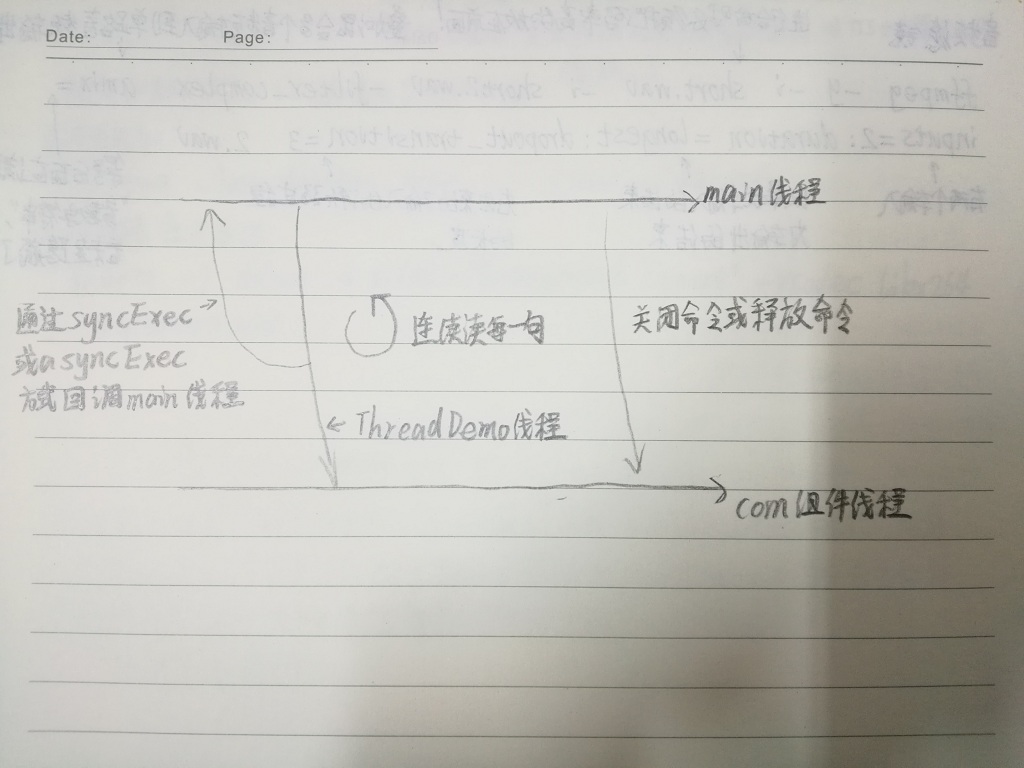 Date: Page:
main线程
通过syncExec
或asyncExec
方式回调main线程
连续读每一句
关闭命令或释放命令
ThreadDemo线程
com组件线程